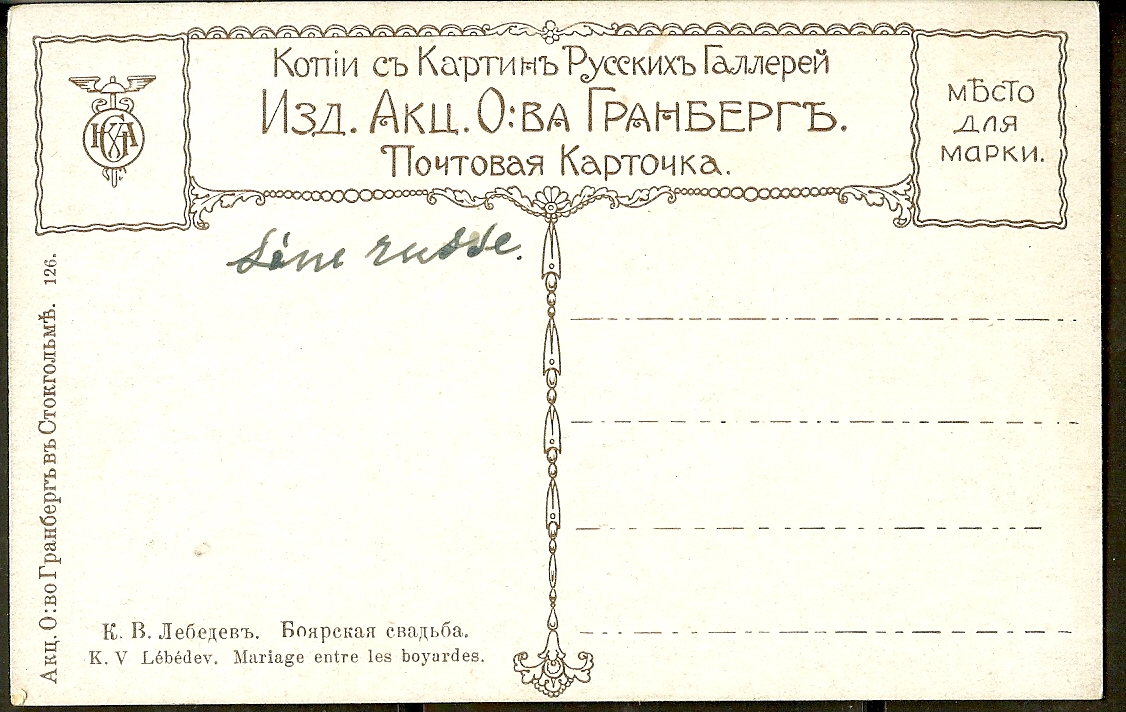 Копіи съ Картинъ Русскихъ Галлерей
Изд. Акц. О:ва Гранбергъ.
Почтовая Карточка.
мѣсто
для
марки.
russe.
Акц. О:во Гранбергъ въ Стокгольмѣ. 126.
К. В. Лебедевъ. Боярская свадьба.
K. V Lébédev. Mariage entre les boyardes.